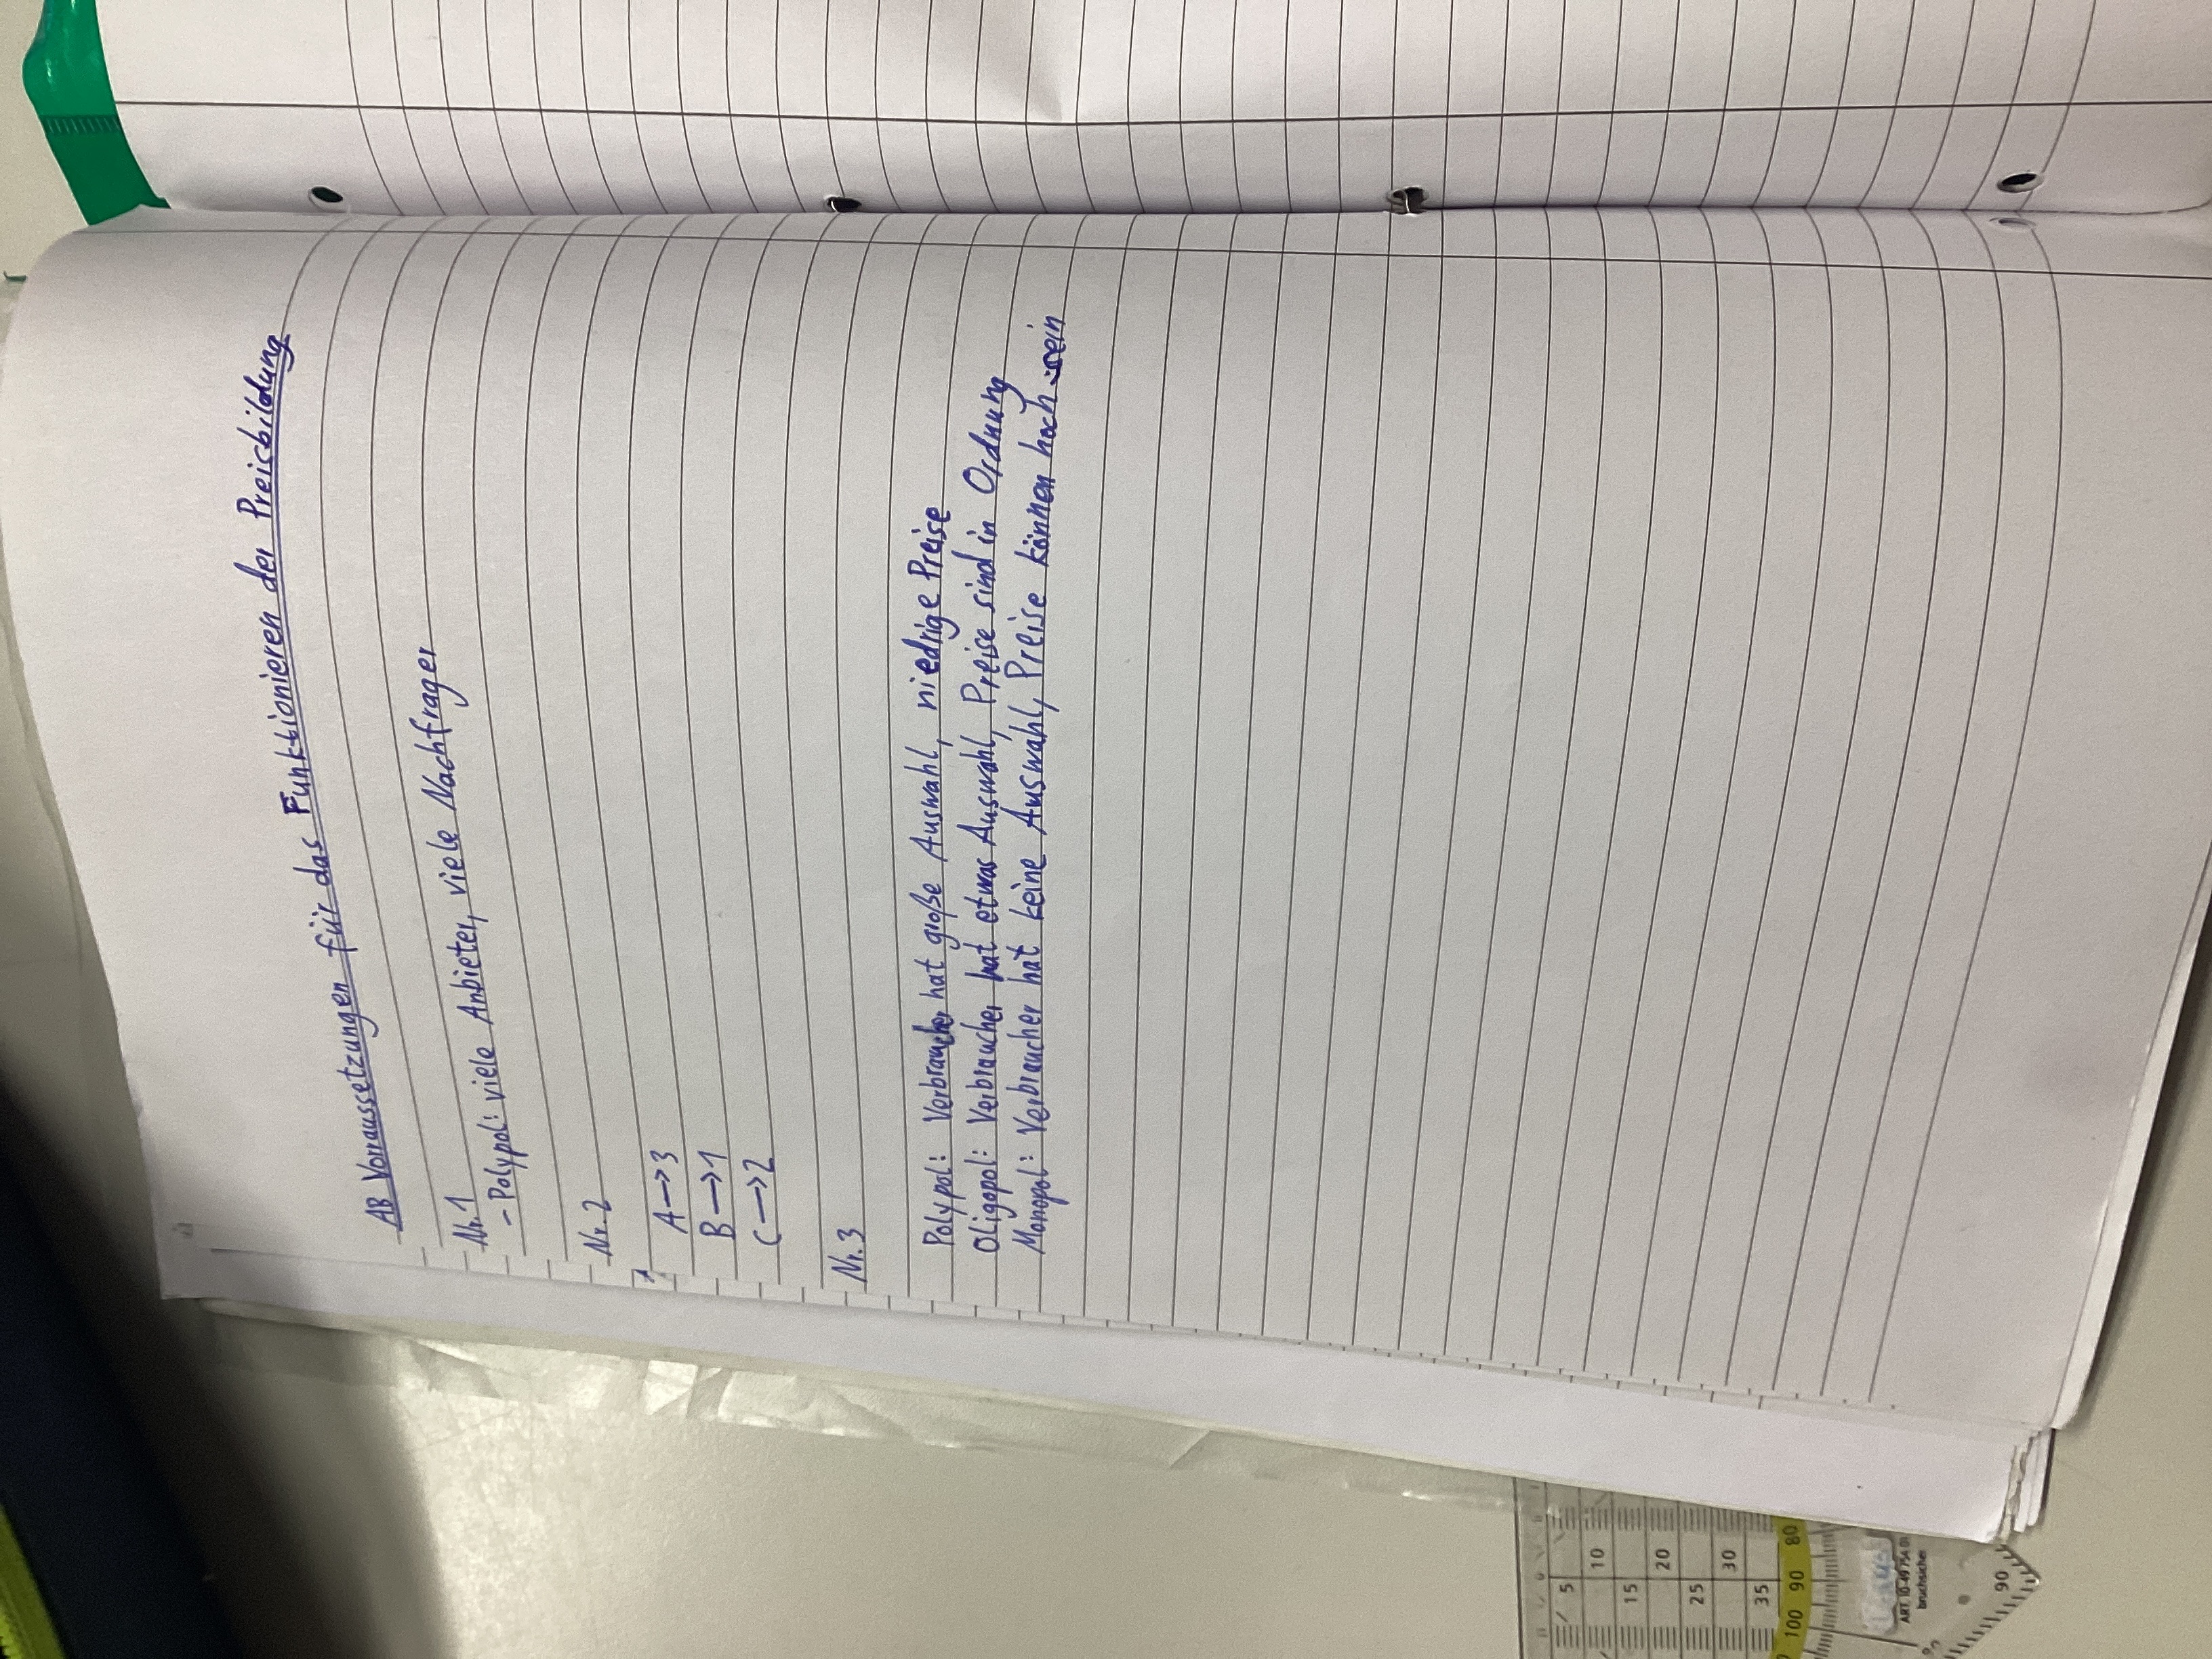 AB Vorraussetzungen für das Funktionieren der Preisbildung
Nr.1
- Polypol: viele Anbieter, viele Nachfrager
Nr.2
A → 3
B → 1
C → 2
Nr.3
Polypol: Verbraucher hat große Auswahl, niedrige Preise
Oligopol: Verbraucher hat etwas Auswahl, Preise sind in Ordnung
Monopol: Verbraucher hat keine Auswahl, Preise können hoch sein
5
10
15
20
25
30
35
80
90
100
90
bruchsicher